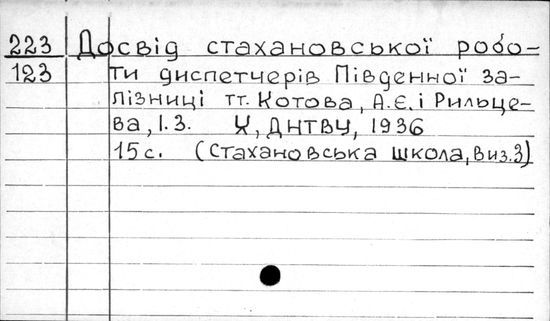 223 Досвід стахановської робо-
123 ти диспетчерів Південної за-
лізниці тт. Котова, А.Є. і Рильце-
ва, І.З. Х, ДНТВУ, 1936
15 с. (Стахановська школа, виз. 3)